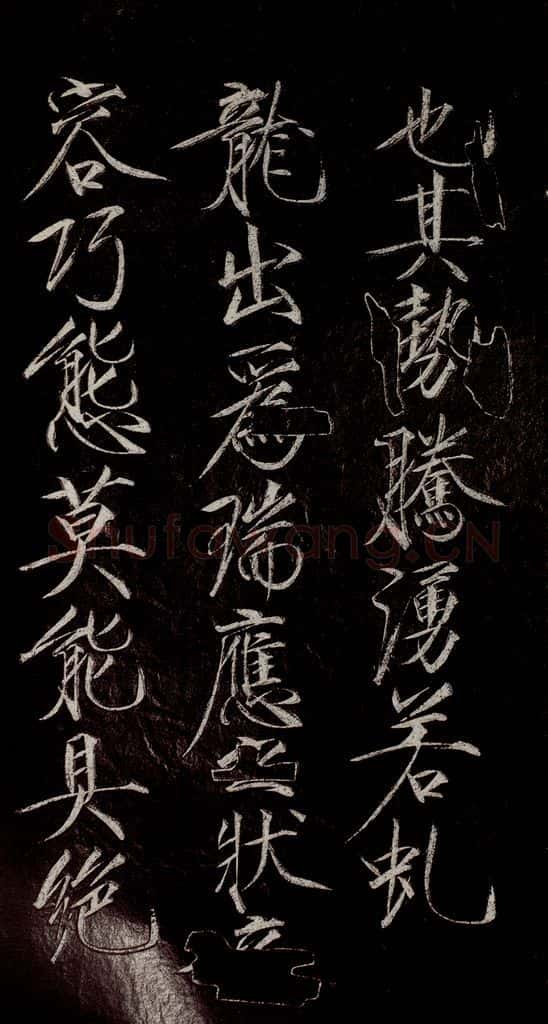 也其勢騰湧若虬
龍出爲瑞應之狀
容巧態莫能具絕
Shufawang.CN